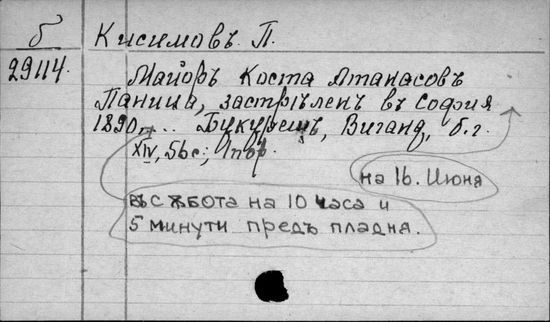 б Кисимовъ П.
29114. Майоръ Коста Атанасовъ
Паница, застрѣленъ въ София
1890,... Букурещъ, Виганд, б.г.
XIV, 56 с.; 1 пор.
на 16. Июня
въ сѫбота на 10 часа и
5 минути предъ пладня.